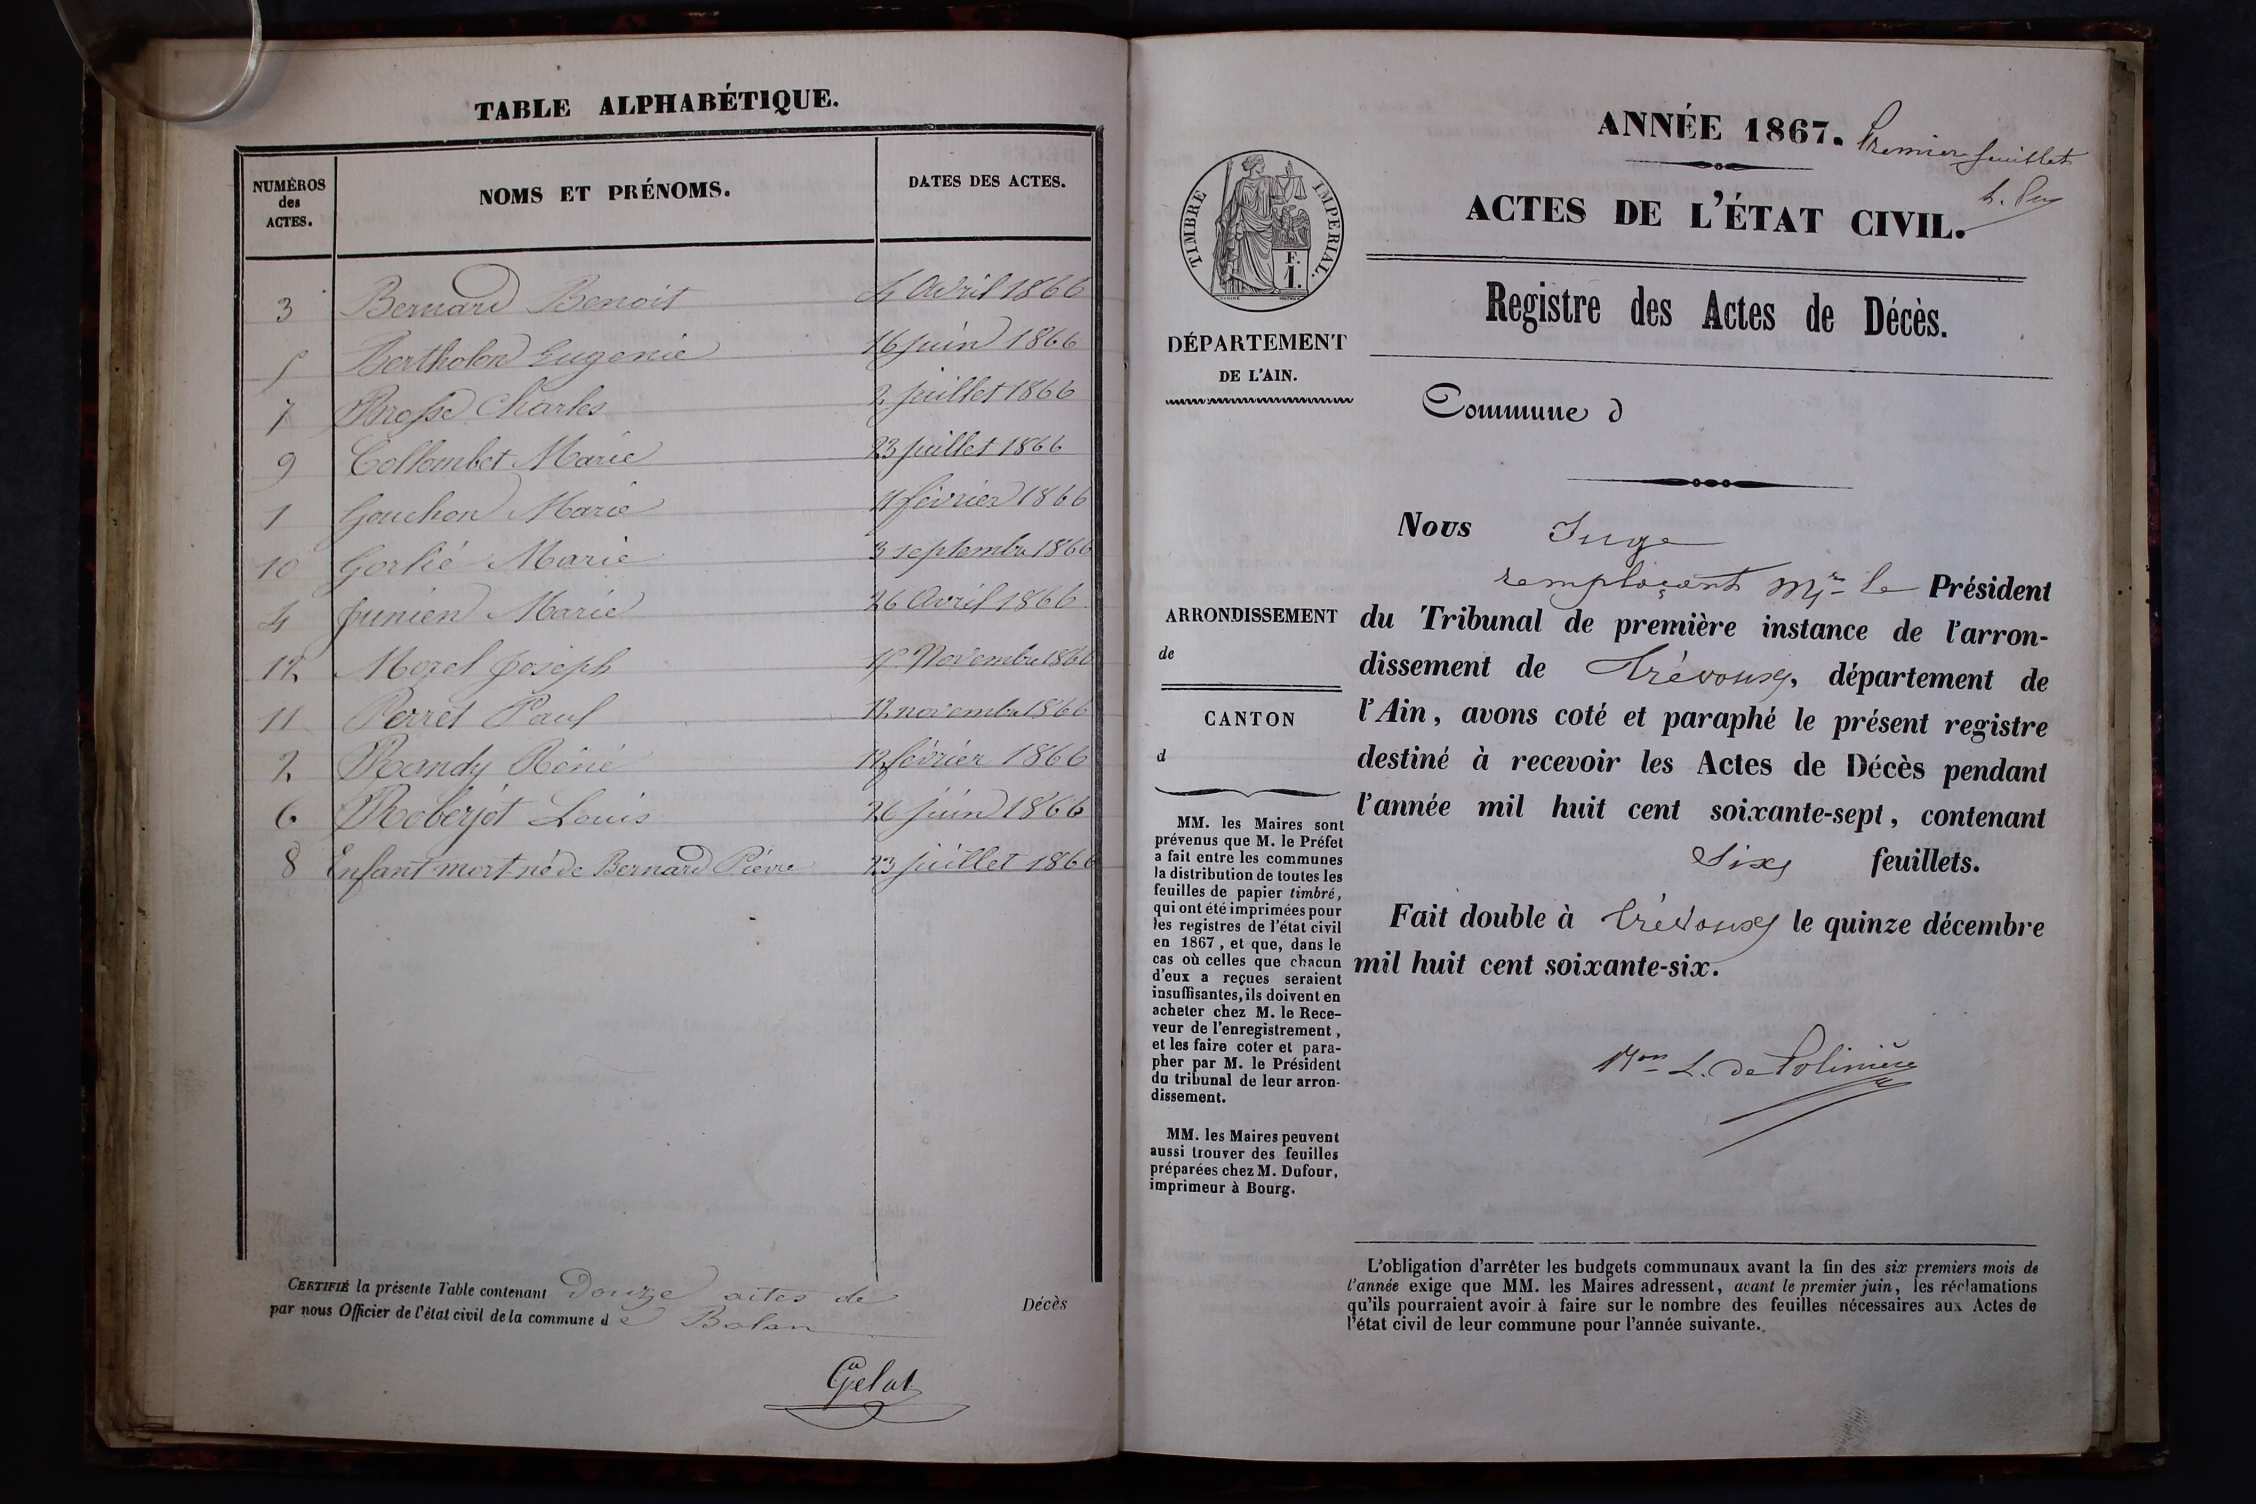 TABLE ALPHABÉTIQUE.
NUMÉROS des ACTES.
NOMS ET PRÉNOMS.
DATES DES ACTES.
3 Bernard Benoit 4 Avril 1866
5 Bertholon Eugenie 16 juin 1866
7 Brosse Charles 2 juillet 1866
9 Collombet Marie 23 juillet 1866
1 Gouchon Marie 11 février 1866
10 Gorlié Marie 3 septembre 1866
4 Junien Marie 26 Avril 1866
12 Morel Joseph Novembre 1866
11 Perret Paul 12 novembre 1866
2 Randy Réné 12 février 1866
6 Roberjot Louis 26 juin 1866
8 Enfant mort-né de Bernard Piérre 23 juillet 1866
CERTIFIÉ la présente Table contenant Douze actes de Décès
par nous Officier de l'état civil de la commune de Balan
Gelat
ANNÉE 1867. Premier feuillet
ACTES DE L'ÉTAT CIVIL.
Registre des Actes de Décès.
TIMBRE IMPERIAL.
F.
1.
DÉPARTEMENT
DE L'AIN.
Commune d
Nous Juge
remplaçant Mr le Président
du Tribunal de première instance de l'arron-
dissement de Trévoux, département de
l'Ain, avons coté et paraphé le présent registre
destiné à recevoir les Actes de Décès pendant
l'année mil huit cent soixante-sept, contenant
Six feuillets.
Fait double à Trévoux le quinze décembre
mil huit cent soixante-six.
L. de Polinière
ARRONDISSEMENT
de
CANTON
d
MM. les Maires sont
prévenus que M. le Préfet
a fait entre les communes
la distribution de toutes les
feuilles de papier timbré,
qui ont été imprimées pour
les registres de l'état civil
en 1867, et que, dans le
cas où celles que chacun
d'eux a reçues seraient
insuffisantes, ils doivent en
acheter chez M. le Rece-
veur de l'enregistrement,
et les faire coter et para-
pher par M. le Président
du tribunal de leur arron-
dissement.
MM. les Maires peuvent
aussi trouver des feuilles
préparées chez M. Dufour,
imprimeur à Bourg.
L'obligation d'arrêter les budgets communaux avant la fin des six premiers mois de
l'année exige que MM. les Maires adressent, avant le premier juin, les réclamations
qu'ils pourraient avoir à faire sur le nombre des feuilles nécessaires aux Actes de
l'état civil de leur commune pour l'année suivante.